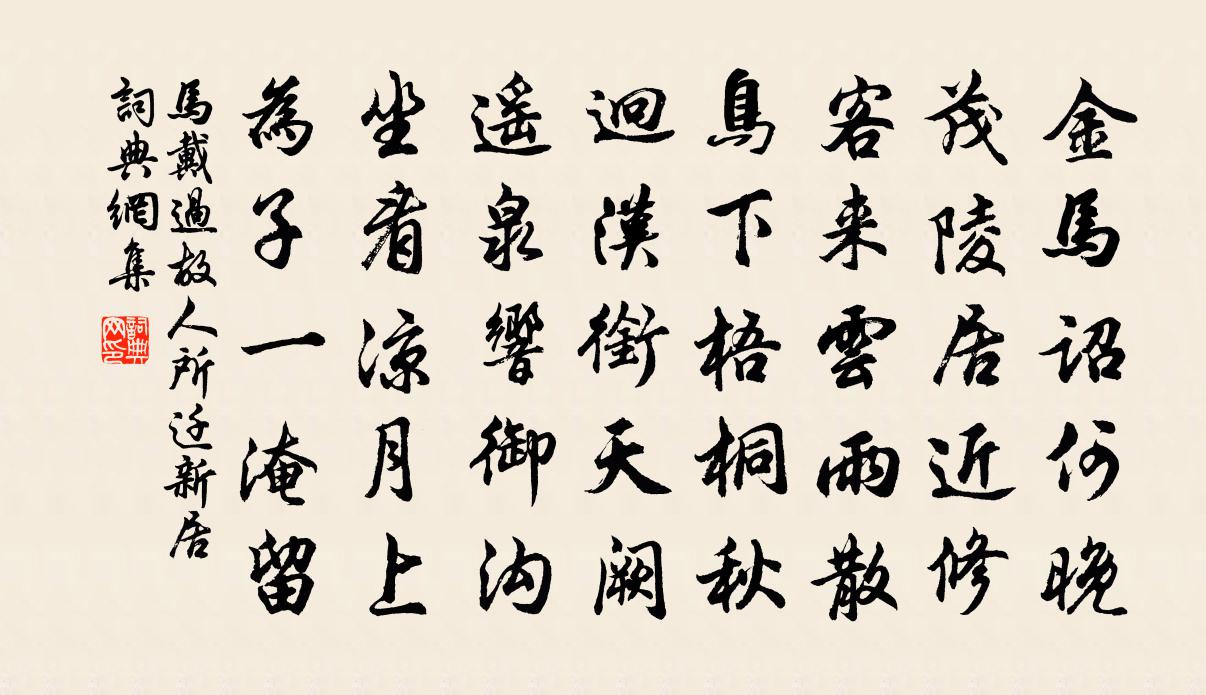 金馬詔何晚
茂陵居近修
客来雲雨散
鳥下梧桐秋
迥漢銜天闕
遥泉響御沟
坐看涼月上
為子一淹留
馬戴過故人所迁新居
詞典網集
詞典网印